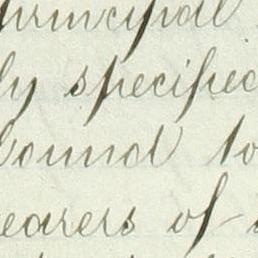 principal
ly specified
bound to
earers of